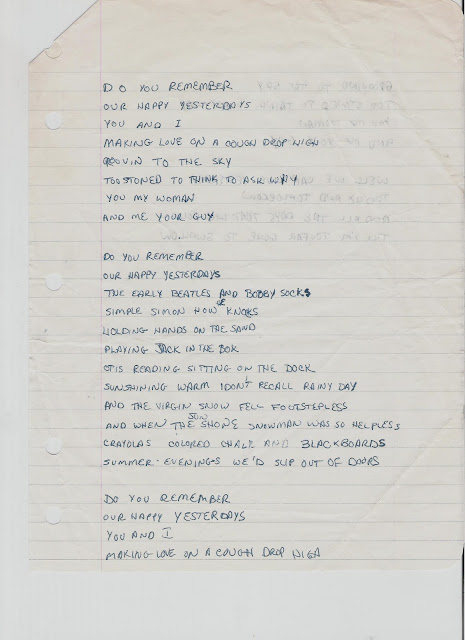 DO YOU REMEMBER
OUR HAPPY YESTERDAYS
YOU AND I
MAKING LOVE ON A COUGH DROP HIGH
GOOVIN TO THE SKY
TOO STONED TO THINK TO ASK WHY
YOU MY WOMAN
AND ME YOUR GUY
DO YOU REMEMBER
OUR HAPPY YESTERDAYS
THE EARLY BEATLES AND BOBBY SOCKS
SIMPLE SIMON HOW HE KNOKS
HOLDING HANDS ON THE SAND
PLAYING JACK IN THE BOX
OTIS READING SITTING ON THE DOCK
SUNSHINING WARM I DON'T RECALL RAINY DAY
AND THE VIRGIN SNOW FELL FOOTSTEPLESS
AND WHEN THE SUN SHONE SNOWMAN WAS SO HELPLESS
CRAYOLAS COLORED CHALK AND BLACKBOARDS
SUMMER EVENINGS WE'D SLIP OUT OF DOORS
DO YOU REMEMBER
OUR HAPPY YESTERDAYS
YOU AND I
MAKING LOVE ON A COUGH DROP HIGH